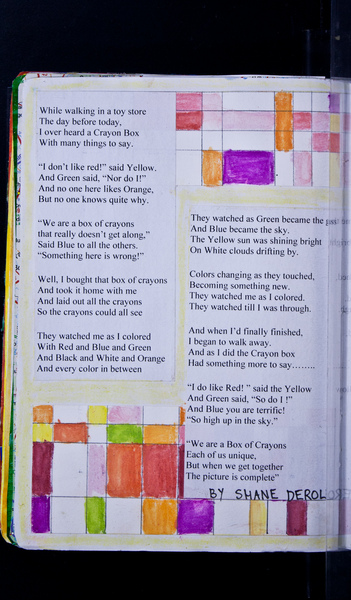 While walking in a toy store
The day before today,
I over heard a Crayon Box
With many things to say.
"I don't like red!" said Yellow.
And Green said, "Nor do I!"
And no one here likes Orange,
But no one knows quite why.
"We are a box of crayons
that really doesn't get along,"
Said Blue to all the others.
"Something here is wrong!"
Well, I bought that box of crayons
And took it home with me
And laid out all the crayons
So the crayons could all see
They watched me as I colored
With Red and Blue and Green
And Black and White and Orange
And every color in between
They watched as Green became the
And Blue became the sky.
The Yellow sun was shining bright
On White clouds drifting by.
Colors changing as they touched,
Becoming something new.
They watched me as I colored.
They watched till I was through.
And when I'd finally finished,
I began to walk away.
And as I did the Crayon box
Had something more to say……..
"I do like Red! " said the Yellow
And Green said, "So do I !"
And Blue you are terrific!
"So high up in the sky."
"We are a Box of Crayons
Each of us unique,
But when we get together
The picture is complete"
BY SHANE DEROL